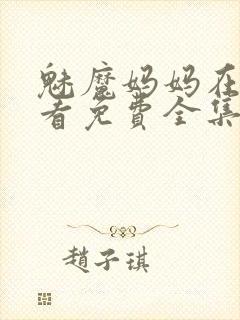 魅魔妈妈在
看免費全集
趙子琪